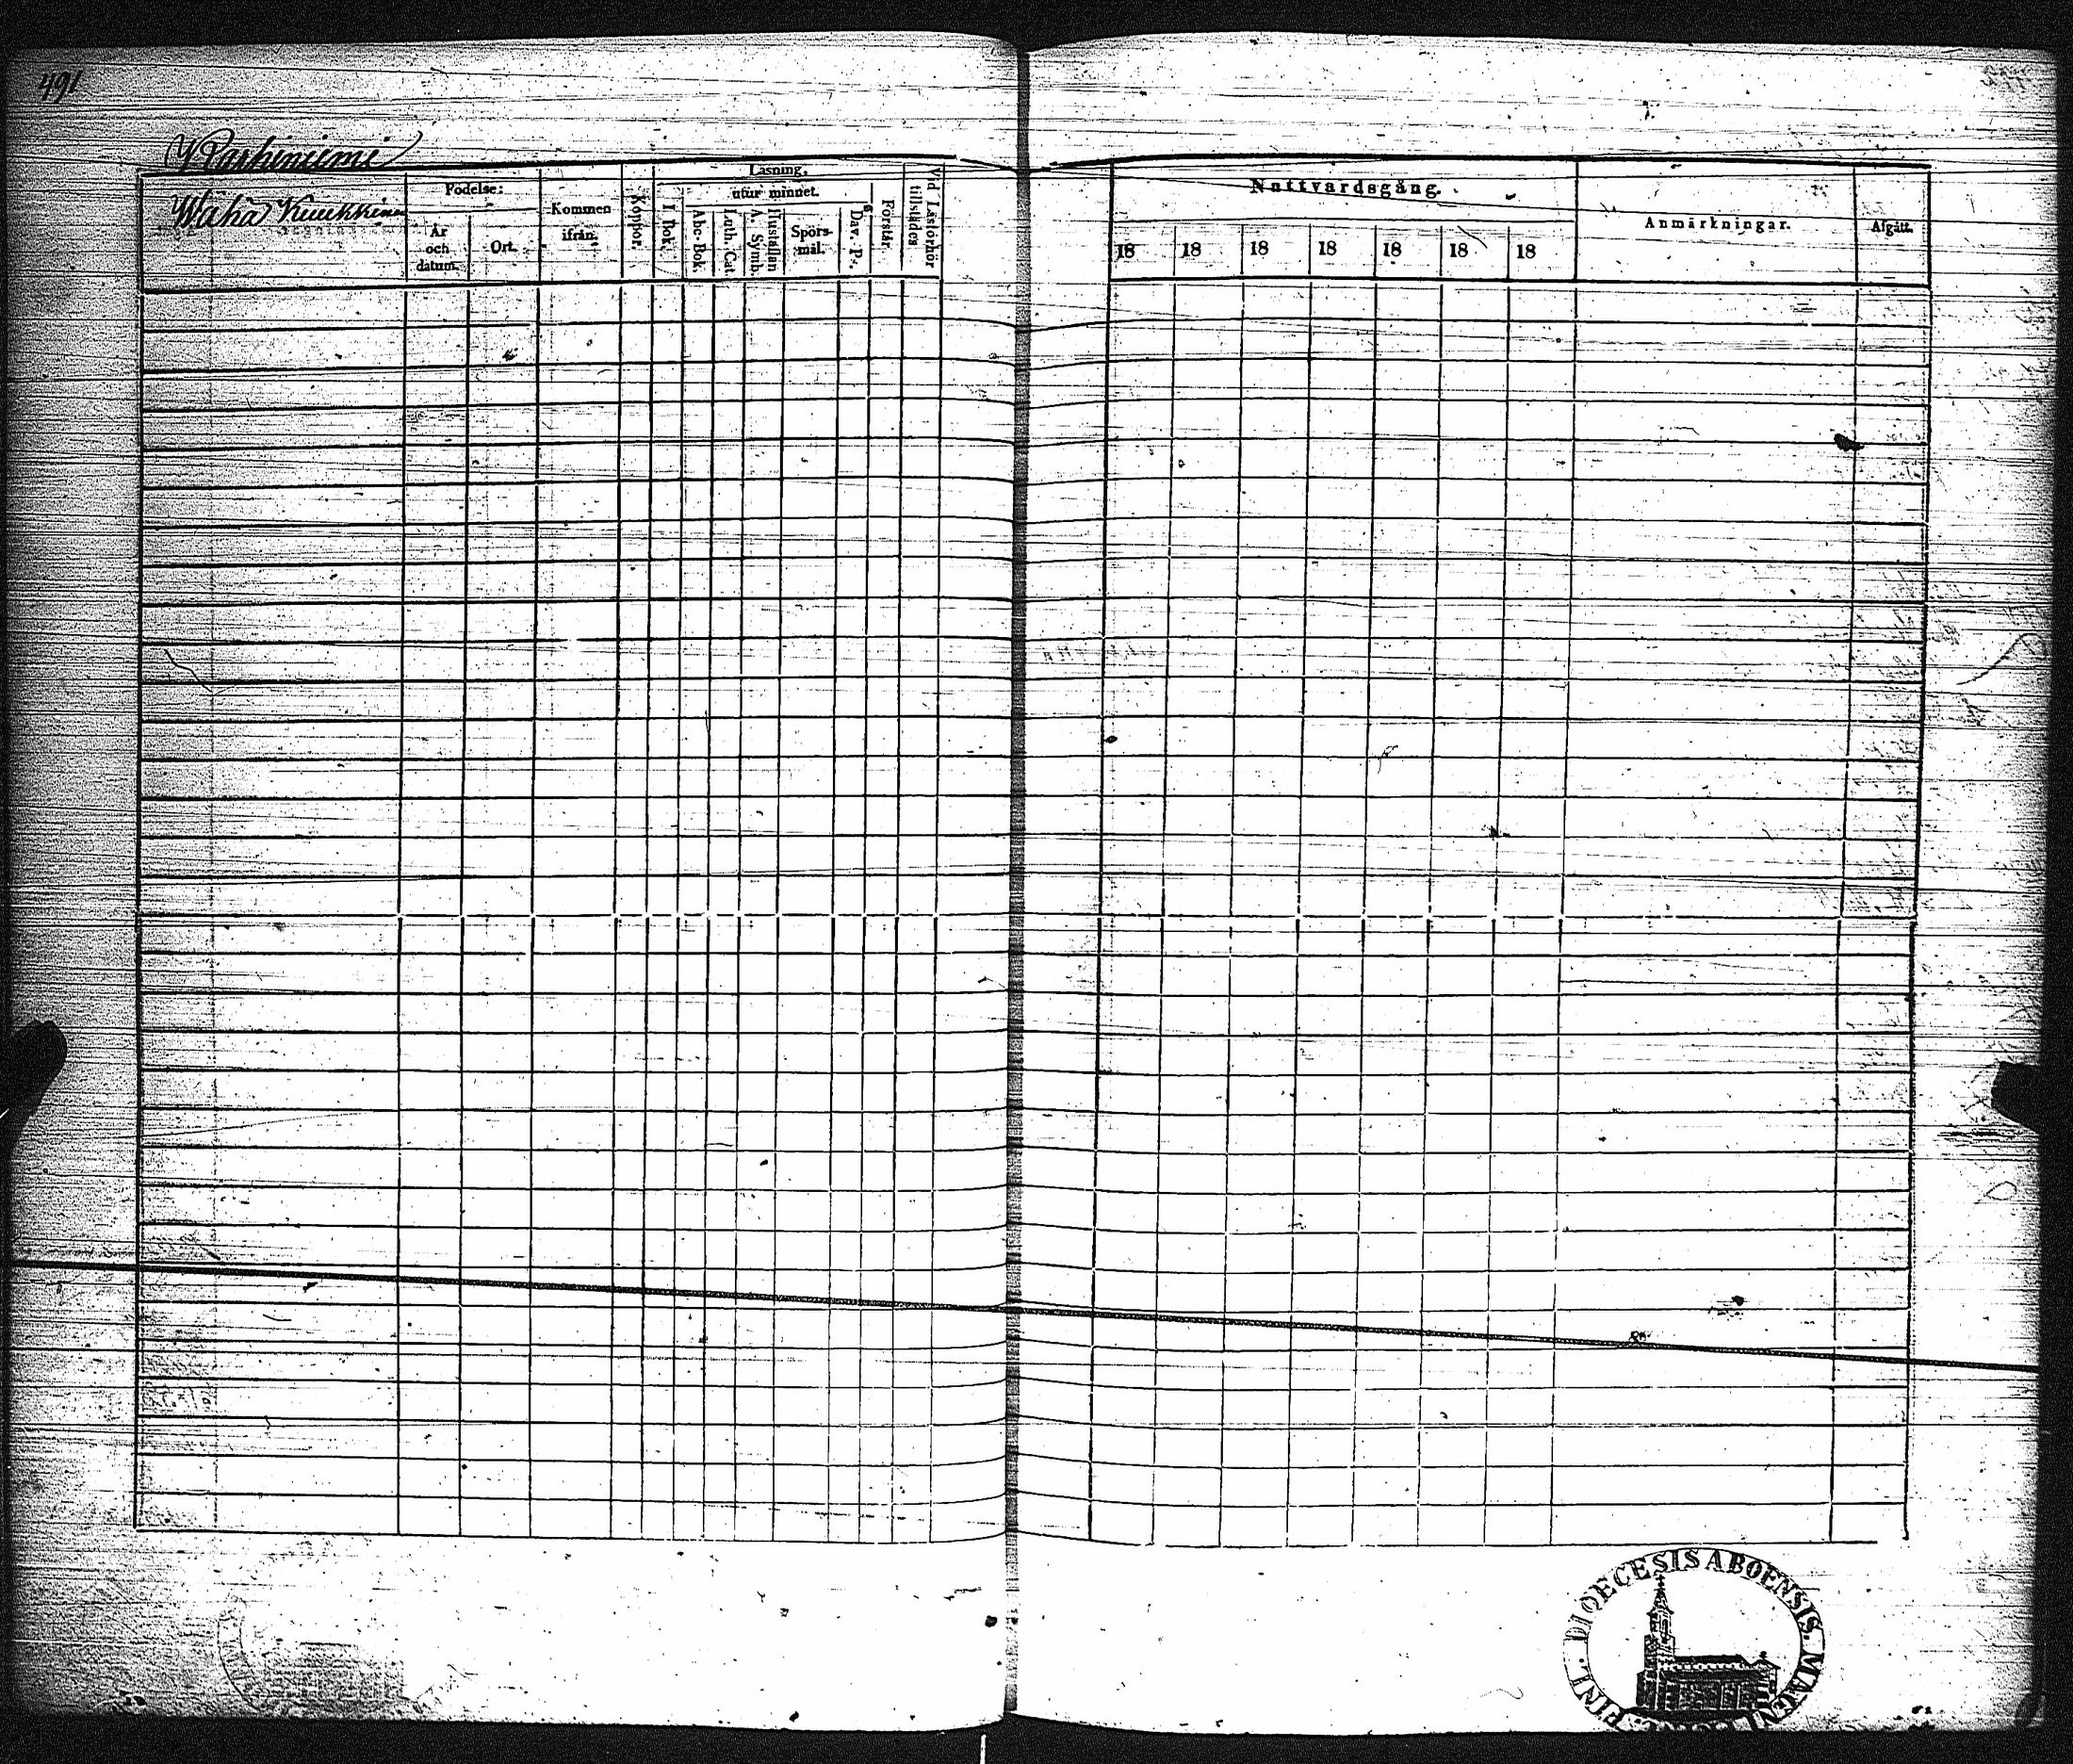 491
Y Parhiniemi
Wähä Kuukkinen
Födelse:
År
och
datum.
Ort.
Kommen
ifrån.
Koppor.
Läsning.
utur minnet.
I Bok.
Abc-Bok.
Luth. Cat.
Hustaflan
A. Symb.
Spörs-
mål.
Dav. Ps.
Förstår.
Vid Läsförhör
tillstädes
Nattvardsgång.
18 18 18 18 18 18 18
Anmärkningar.
Afgått.
DIOECESIS ABOENSIS.